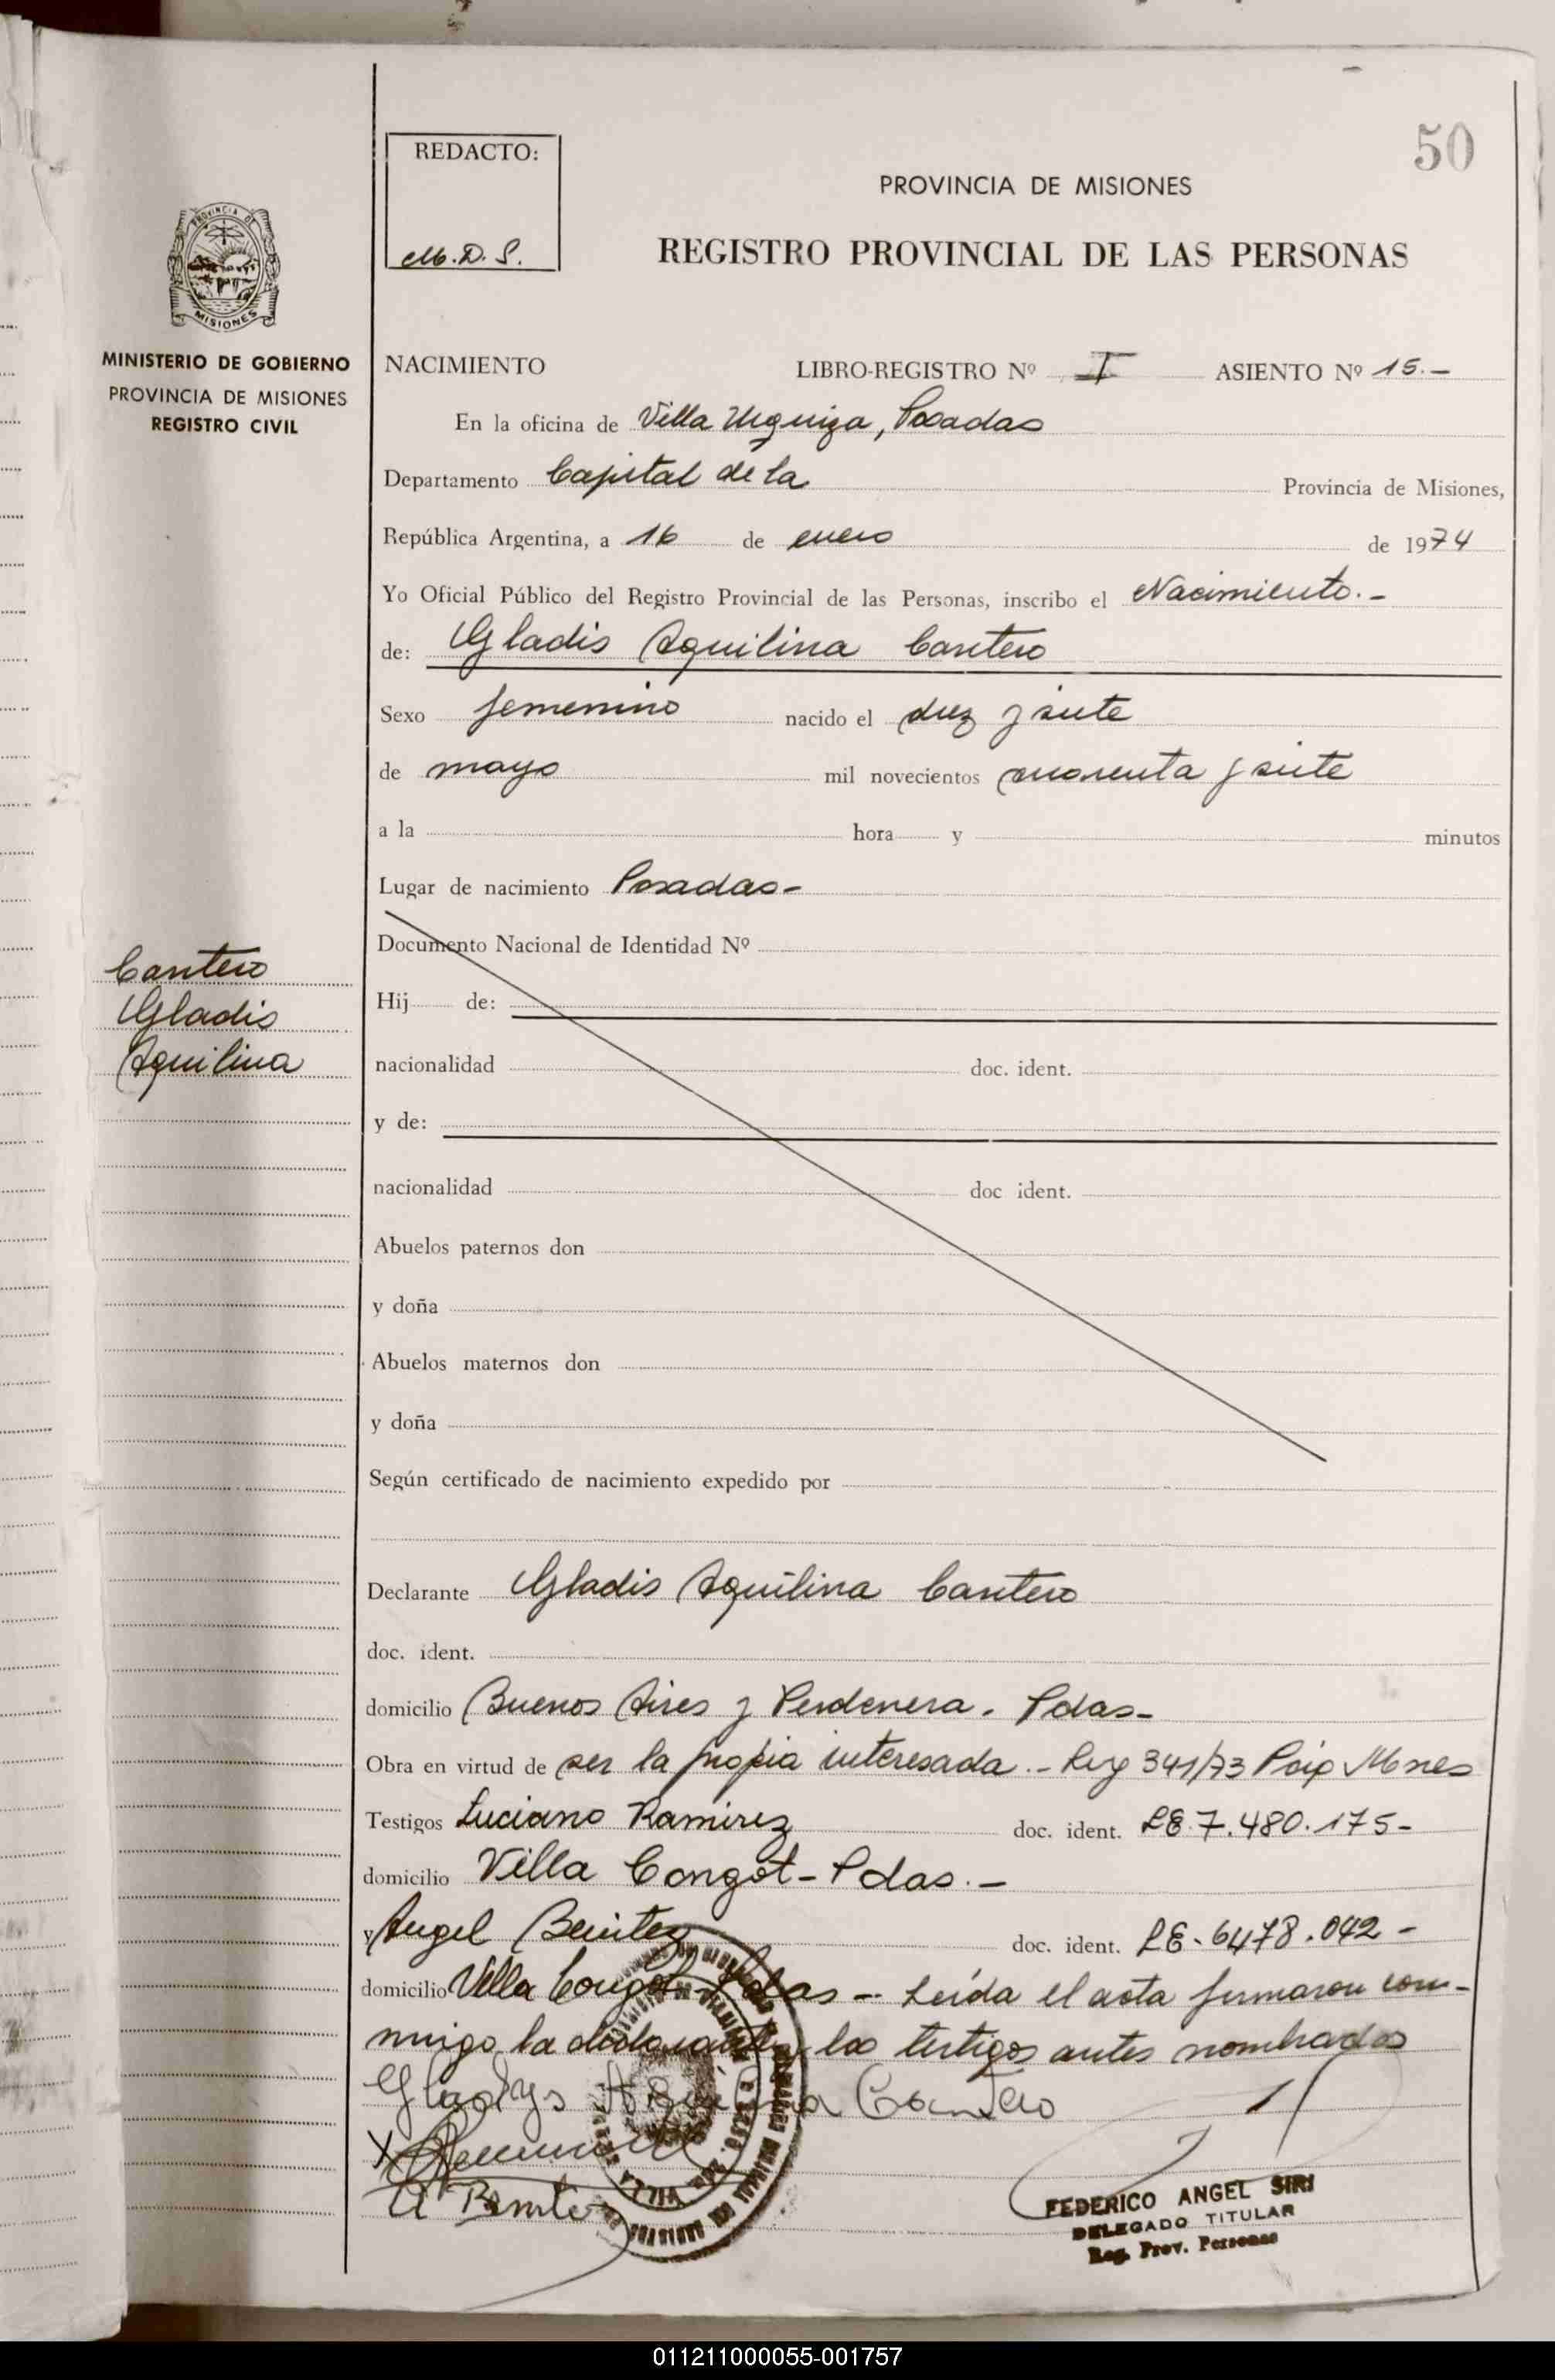 50
REDACTO:
M. D. S.
PROVINCIA DE MISIONES
REGISTRO PROVINCIAL DE LAS PERSONAS
PROVINCIA DE
MISIONES
MINISTERIO DE GOBIERNO
PROVINCIA DE MISIONES
REGISTRO CIVIL
Cantero
Gladis
Aquilina
NACIMIENTO LIBRO-REGISTRO Nº I ASIENTO Nº 15.-
En la oficina de Villa Urquiza, Posadas
Departamento Capital de la Provincia de Misiones,
República Argentina, a 16 de enero de 1974
Yo Oficial Público del Registro Provincial de las Personas, inscribo el Nacimiento.-
de: Gladis Aquilina Cantero
Sexo femenino nacido el diez y siete
de mayo mil novecientos cuarenta y siete
a la hora y minutos
Lugar de nacimiento Posadas-
Documento Nacional de Identidad Nº
Hij de:
nacionalidad doc. ident.
y de:
nacionalidad doc ident.
Abuelos paternos don
y doña
Abuelos maternos don
y doña
Según certificado de nacimiento expedido por
Declarante Gladis Aquilina Cantero
doc. ident.
domicilio Buenos Aires y Perdenera. Pdas-
Obra en virtud de ser la propia interesada.- Ley 341/73 Mnes
Testigos Luciano Ramirez doc. ident. LE.7.480.175-
domicilio Villa Congot-Pdas.-
y Angel Benitez doc. ident. LE-6478.042-
domicilio Villa Congot-Pdas - Leída el acta firmaron con-
migo, la declarante y los testigos antes nombrados
Gladys Aquilina Cantero
A Benitez
FEDERICO ANGEL SIRI
DELEGADO TITULAR
Reg. Prov. Personas
011211000055-001757